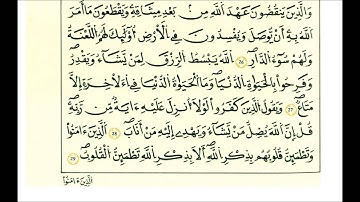 وَالَّذِينَ يَنقُضُونَ عَهْدَ اللَّهِ مِنۢ بَعْدِ مِيثَاقِهِ وَيَقْطَعُونَ مَا أَمَرَ
اللَّهُ بِهِ أَن يُوصَلَ وَيُفْسِدُونَ فِي الْأَرْضِ أُوْلَٰئِكَ لَهُمُ اللَّعْنَةُ
وَلَهُمْ سُوءُ الدَّارِ ٢٦ اللَّهُ يَبْسُطُ الرِّزْقَ لِمَن يَشَاءُ وَيَقْدِرُ
وَفَرِحُواْ بِالْحَيَوٰةِ الدُّنْيَا وَمَا الْحَيَوٰةُ الدُّنْيَا فِي الْأَخِرَةِ إِلَّا
مَتَٰعٌ ٢٧ وَيَقُولُ الَّذِينَ كَفَرُواْ لَوْلَا أُنزِلَ عَلَيْهِ ءَايَةٌ مِّن رَّبِّهِ
قُلْ إِنَّ اللَّهَ يُضِلُّ مَن يَشَاءُ وَيَهْدِي إِلَيْهِ مَنْ أَنَابَ ٢٨ الَّذِينَ ءَامَنُواْ
وَتَطْمَئِنُّ قُلُوبُهُم بِذِكْرِ اللَّهِ أَلَا بِذِكْرِ اللَّهِ تَطْمَئِنُّ الْقُلُوبُ ٢٩
الَّذِينَ ءَامَنُواْ